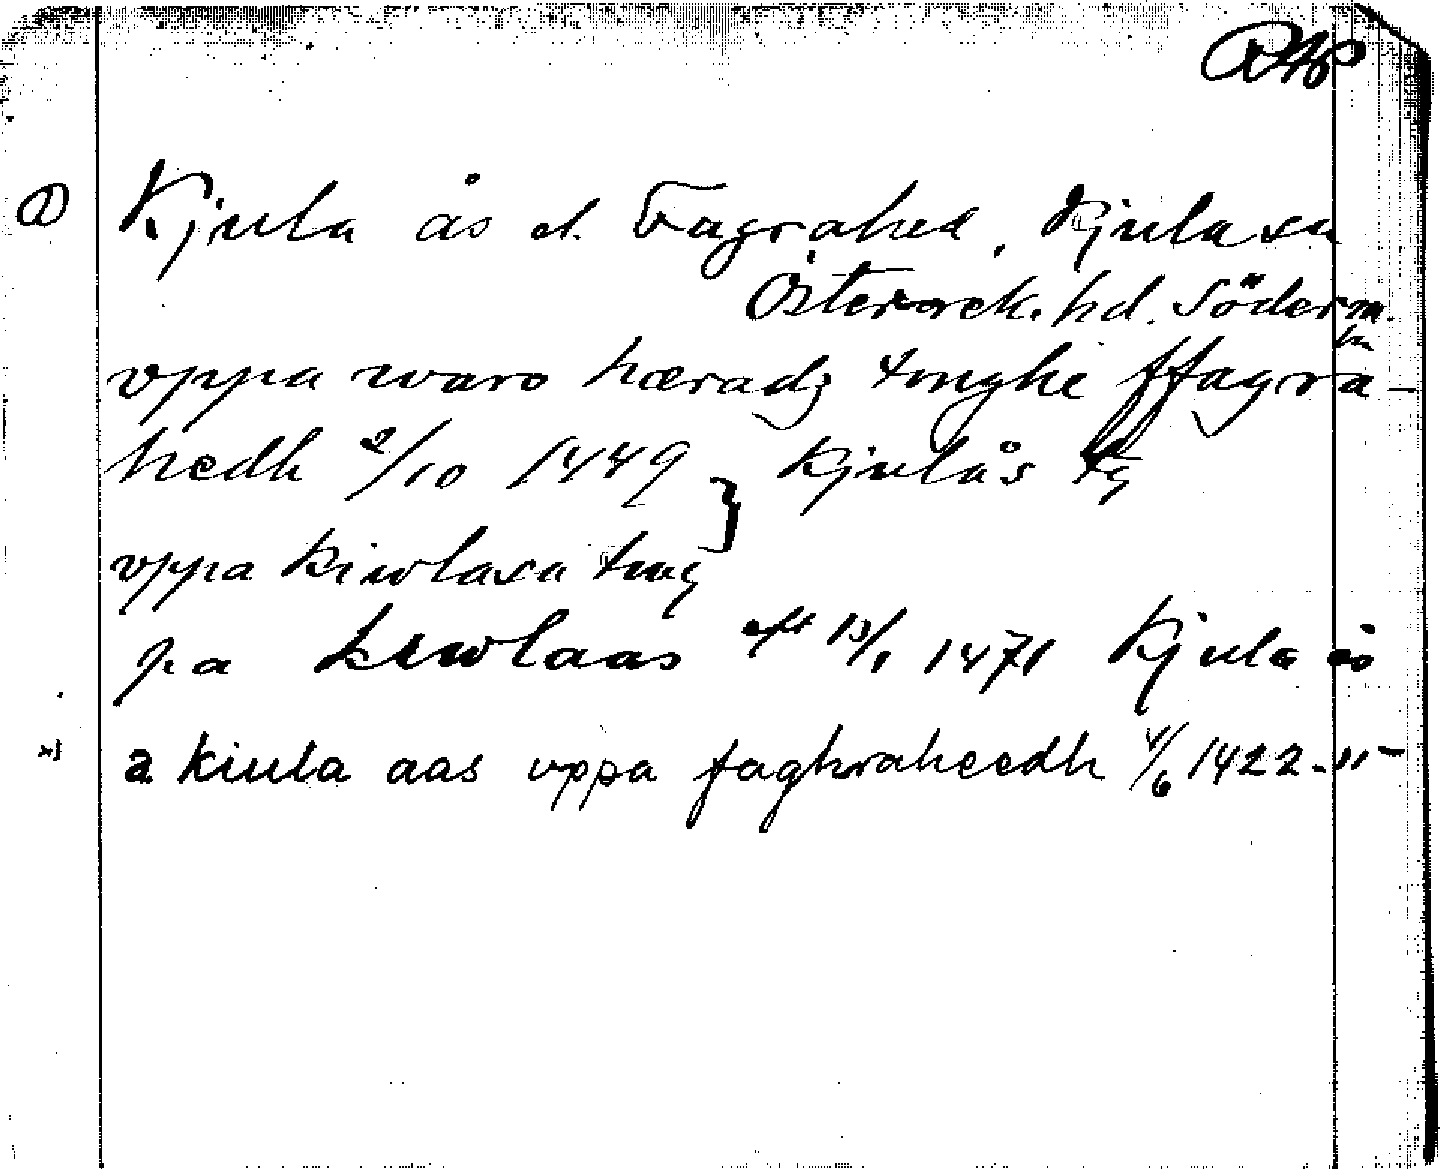 RAP
Kjula ås el. Fagrahed, Kjula sn
Österrek. hd. Söderm.
ln
vppa waro hæradz tinghe ffagra-
hedh 2/10 1449 } Kjulaås tg
vppa kiwlasa ting
pa kiwlaas aft 13/1 1471 Kjula ås
a kiula aas vppa faghraheedh 4/6 1422 - " -